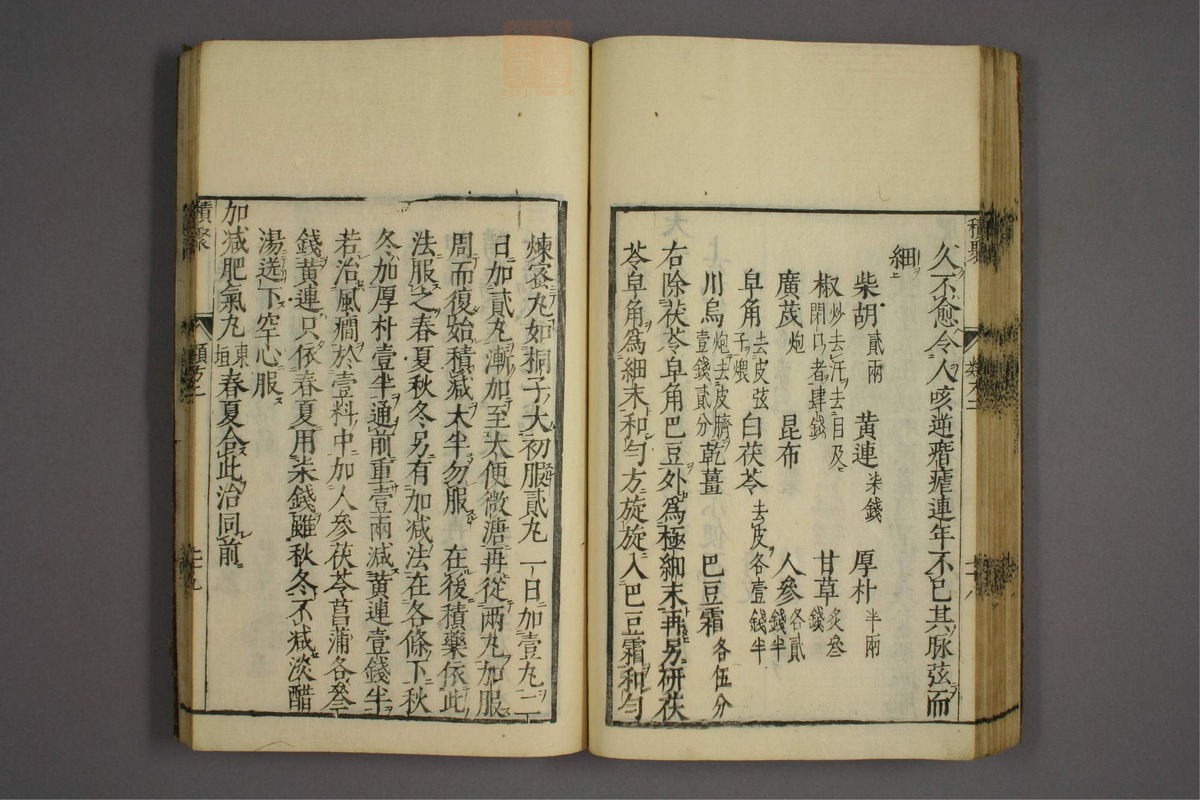 久不愈令人咳逆痎瘧連年不已其脉弦而
細
柴胡貳兩 黃連柒錢 厚朴半兩
椒炒去汗去目及閉口者肆錢 甘草炙叄錢
廣茂炮 昆布 人參各貳錢半
皁角去皮弦子煨 白茯苓去皮各壹錢半
川烏炮去皮臍壹錢貳分 乾薑 巴豆霜各伍分
右除茯苓皁角巴豆外爲極細末再另研茯
苓皁角爲細末和勻方旋旋入巴豆霜和勻
煉蜜丸如桐子大初服貳丸一日加壹丸二
日加貳丸漸加至大便微溏再從兩丸加服
周而復始積減大半勿服 在後積藥依此
法服之春夏秋冬另有加減法在各條下秋
冬加厚朴壹半通前重壹兩減黃連壹錢半
若治風癎於壹料中加人參茯苓菖蒲各叄
錢黃連只依春夏用柒錢雖秋冬不減淡醋
湯送下空心服
加減肥氣丸東垣 春夏合此治同前
積聚
類方